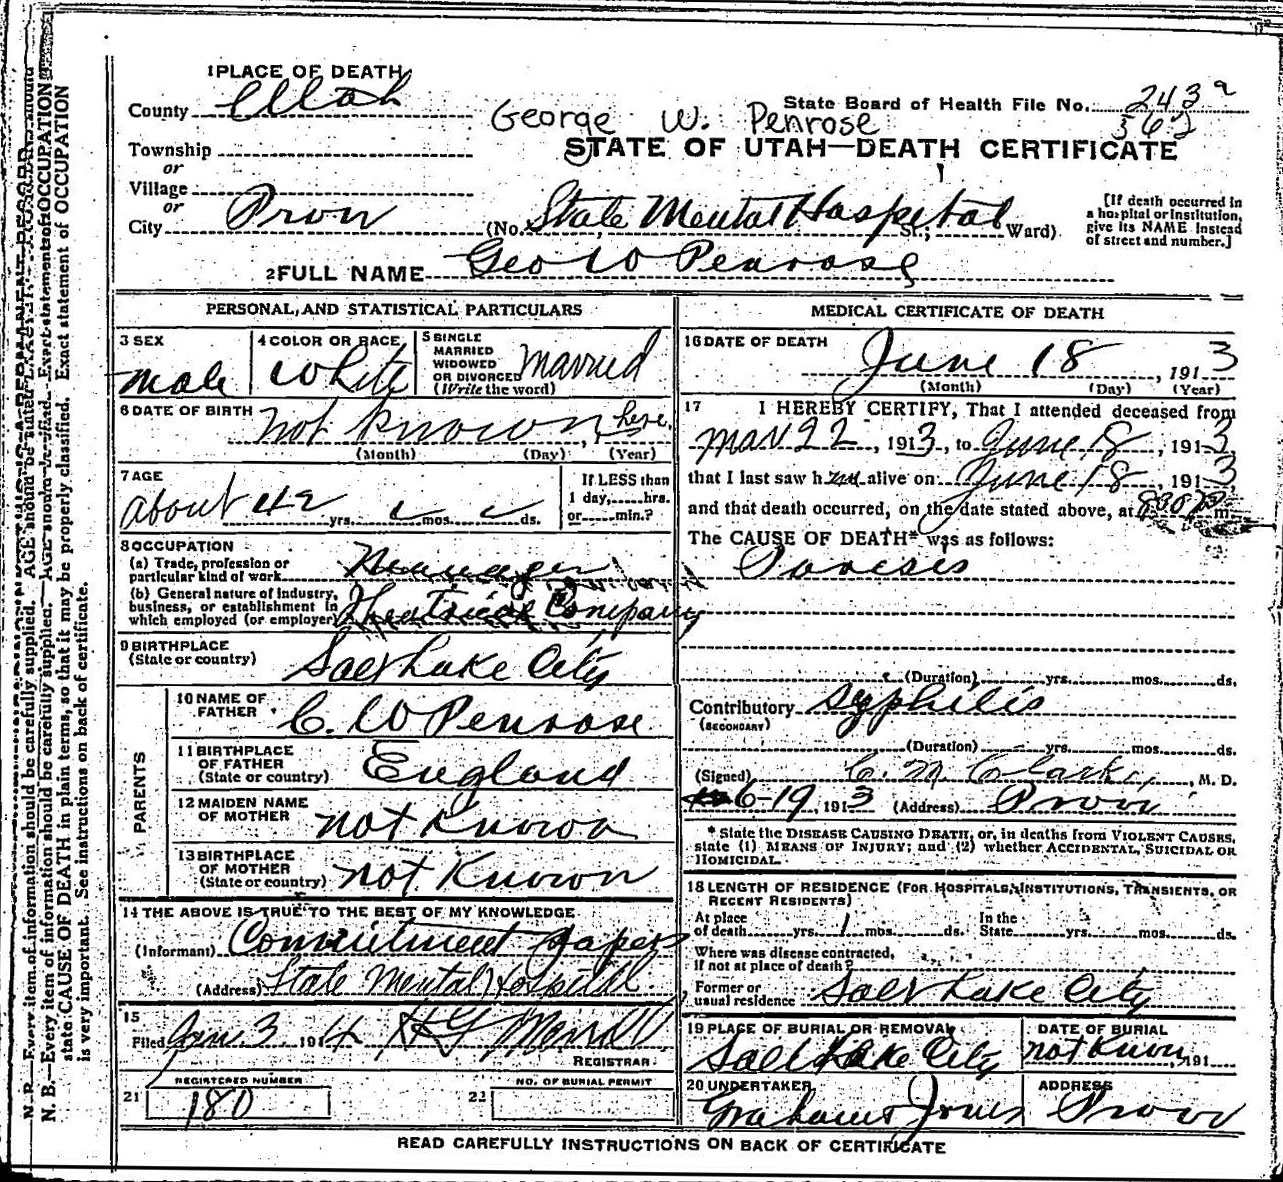 1 PLACE OF DEATH
County Utah
State Board of Health File No. 243 a
362
George W. Penrose
Township
STATE OF UTAH—DEATH CERTIFICATE
or
Village
or
City Provo (No. State Mental Hospital St.; Ward)
[If death occurred in a hospital or institution, give its NAME instead of street and number.]
2 FULL NAME Geo W Penrose
PERSONAL, AND STATISTICAL PARTICULARS
3 SEX
male
4 COLOR OR RACE
White
5 SINGLE
MARRIED
WIDOWED
OR DIVORCED
(Write the word)
Married
6 DATE OF BIRTH
not known here,
(Month) (Day) (Year)
7 AGE
about 42 yrs. mos. ds.
If LESS than
1 day, hrs.
or min.?
8 OCCUPATION
(a) Trade, profession or
particular kind of work Manager
(b) General nature of industry,
business, or establishment in
which employed (or employer) Theatrical Company
9 BIRTHPLACE
(State or country) Salt Lake City
PARENTS
10 NAME OF
FATHER C. W Penrose
11 BIRTHPLACE
OF FATHER
(State or country) England
12 MAIDEN NAME
OF MOTHER not Known
13 BIRTHPLACE
OF MOTHER
(State or country) not Known
14 THE ABOVE IS TRUE TO THE BEST OF MY KNOWLEDGE
(Informant) Commitment papers
(Address) State Mental Hospital
15
Filed Jan 3 1914 H G Merrill
REGISTRAR
REGISTERED NUMBER
21 180
NO. OF BURIAL PERMIT
22
MEDICAL CERTIFICATE OF DEATH
16 DATE OF DEATH
June 18, 1913
(Month) (Day) (Year)
17 I HEREBY CERTIFY, That I attended deceased from
Mar 22, 1913, to June 18, 1913
that I last saw him alive on June 18, 1913,
and that death occurred, on the date stated above, at 830 P m.
The CAUSE OF DEATH* was as follows:
Paresis
(Duration) yrs. mos. ds.
Contributory syphilis
(SECONDARY)
(Duration) yrs. mos. ds.
(Signed) C. M. Clark, M. D.
6-19, 1913 (Address) Provo
* State the DISEASE CAUSING DEATH, or, in deaths from VIOLENT CAUSES,
state (1) MEANS OF INJURY; and (2) whether ACCIDENTAL, SUICIDAL OR
HOMICIDAL.
18 LENGTH OF RESIDENCE (FOR HOSPITALS, INSTITUTIONS, TRANSIENTS, OR
RECENT RESIDENTS)
At place
of death yrs. 1 mos. ds.
In the
State yrs. mos. ds.
Where was disease contracted,
if not at place of death?
Former or
usual residence Salt Lake City
19 PLACE OF BURIAL OR REMOVAL
Salt Lake City
DATE OF BURIAL
not Known, 191
20 UNDERTAKER
Graham & Jones
ADDRESS
Provo
READ CAREFULLY INSTRUCTIONS ON BACK OF CERTIFICATE
N. B.—Every item of information should be carefully supplied. AGE should be stated EXACTLY.
N. B.—Every item of information should be carefully supplied. AGE should be stated. Exact statement of OCCUPATION
state CAUSE OF DEATH in plain terms, so that it may be properly classified. Exact statement of OCCUPATION
is very important. See instructions on back of certificate.